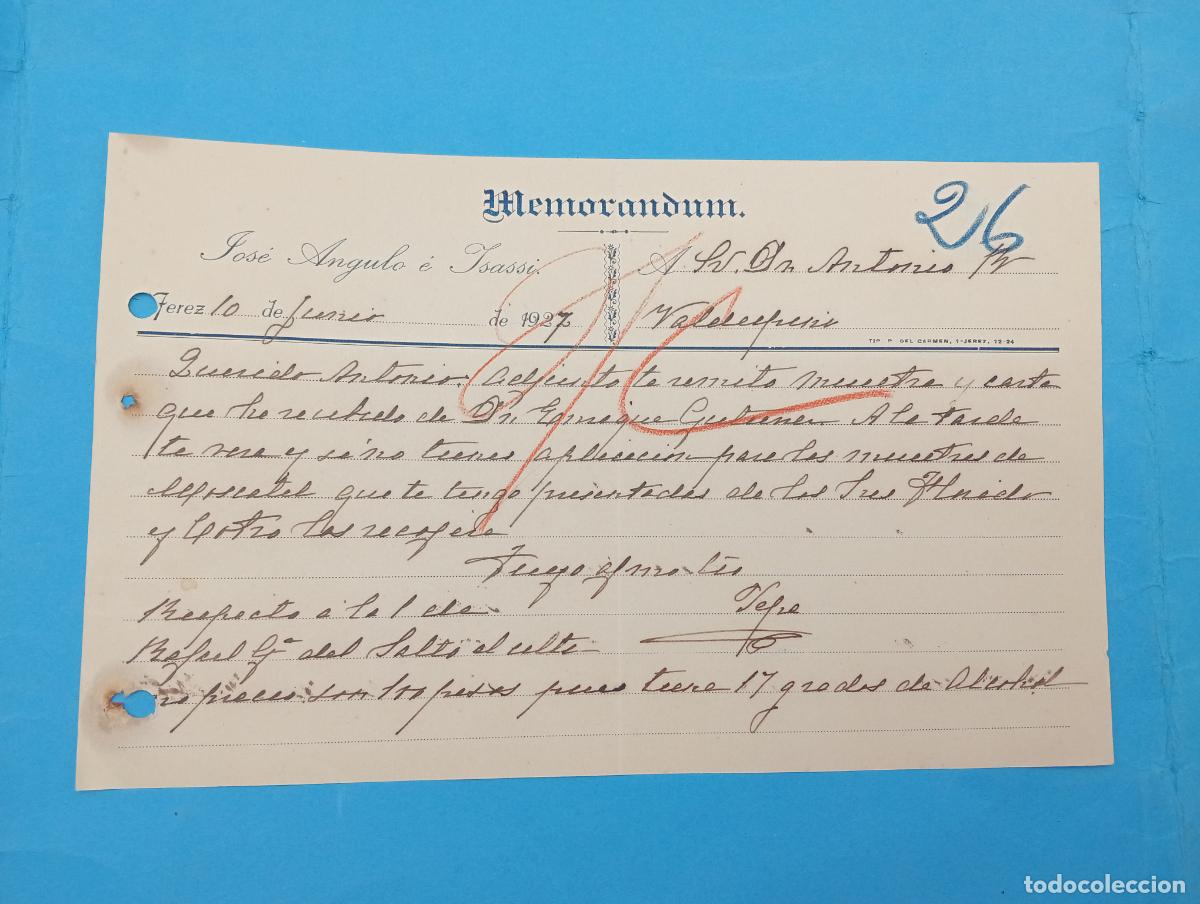 Memorandum.
26
José Angulo é Isassi.
A Sr. Dn Antonio
Jerez 10 de Junio de 1927
Valdespino
TIP. P. DEL CARMEN, 1-JEREZ, 12-24
Querido Antonio: Adjunto te remito muestra y carta
que he recibido de Dn Enrique Gutierrez. A la tarde
te vere y si no tienes aplicacion para las muestras de
Moscatel que te tengo presentadas de los Sres
y Cotro las recogere
Tuyo afmo tio
Respecto a la 1 de
Pepe
Rafael Ga del Salto el
precio son 100 pesos pues tiene 17 grados de Alcohol
todocoleccion